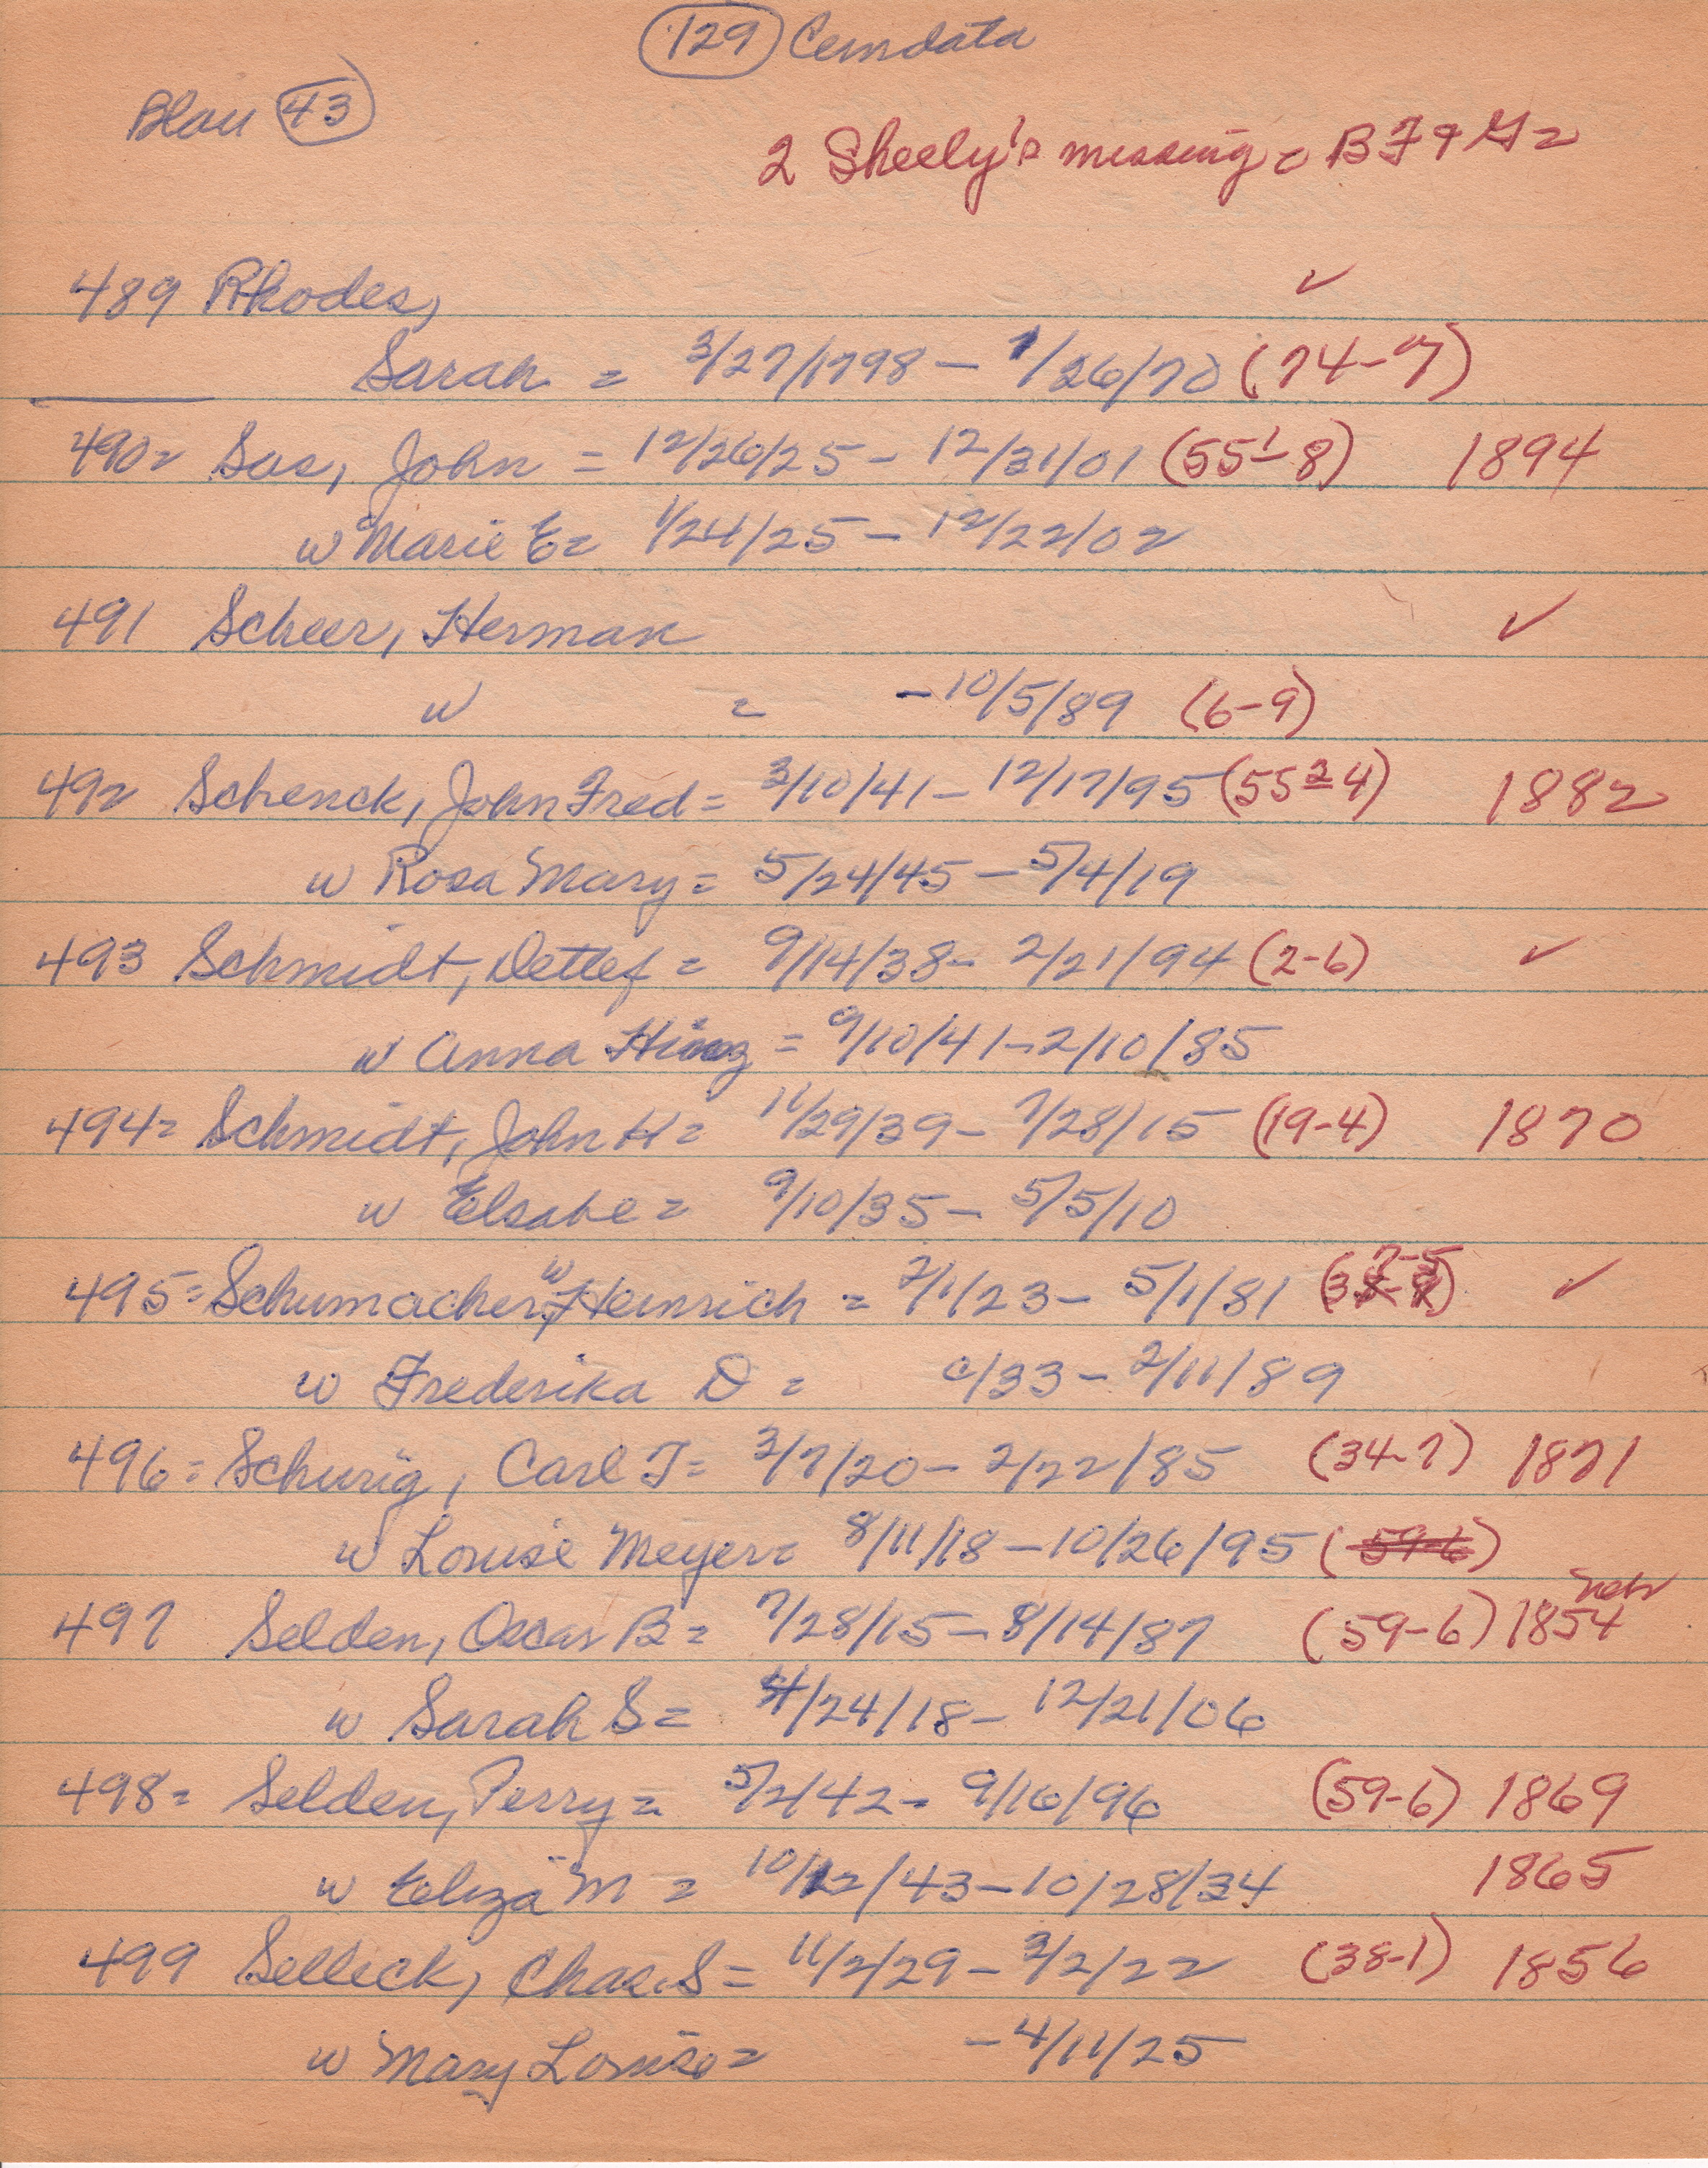 129 Cemdata
Blau 43
2 Sheely's missing = BF & G =
489 Rhodes, ✓
Sarah = 3/27/1798 - 1/26/70 (74-7)
490 = Sas, John = 12/26/25 - 12/31/01 (55¹-8) 1894
w Marie E = 1/24/25 - 12/22/02
491 Scheer, Herman ✓
w = - 10/5/89 (6-9)
492 Schenck, John Fred = 3/10/41 - 12/17/95 (55²-4) 1882
w Rosa Mary = 5/24/45 - 5/4/19
493 Schmidt, Detlef = 9/14/38 - 2/21/94 (2-6) ✓
w Anna Hinz = 9/10/41 - 2/10/85
494 = Schmidt, John H = 11/29/39 - 7/28/15 (19-4) 1870
w Elsabe = 9/10/35 - 5/5/10
495 = Schumacher, W Heinrich = 2/1/23 - 5/1/81 (37-5) ✓
w Frederika D = c/33 - 2/11/89
496 = Schurig, Carl T = 3/7/20 - 2/22/85 (34-7) 1871
w Louise Meyer = 8/11/18 - 10/26/95 (59-6)
497 Selden, Oscar B = 7/28/15 - 8/14/87 (59-6) 1854
w Sarah S = 4/24/18 - 12/21/06
498 = Selden, Perry = 5/2/42 - 9/16/96 (59-6) 1869
w Eliza M = 10/12/43 - 10/28/34 1865
499 Selleck, Chas. S = 11/2/29 - 3/2/22 (38-1) 1856
w Mary Louise = - 4/11/25